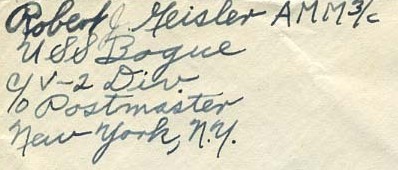 Robert J. Meisler AMM3/c
USS Bogue
c/o V-2 Div.
Postmaster
New York, N.Y.